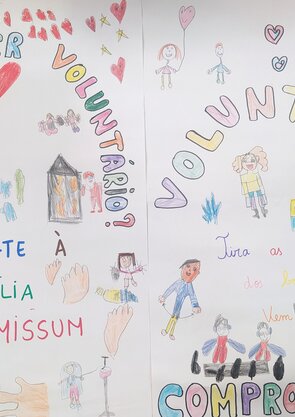 ER
VOLUNTÁRIO?
TE À
LIA
MISSUM
VOLUNT
Tira as
dos
Vem
COMPRO